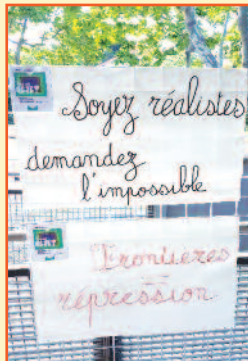 Soyez réalistes
demandez
l'impossible
Frontieres
répression